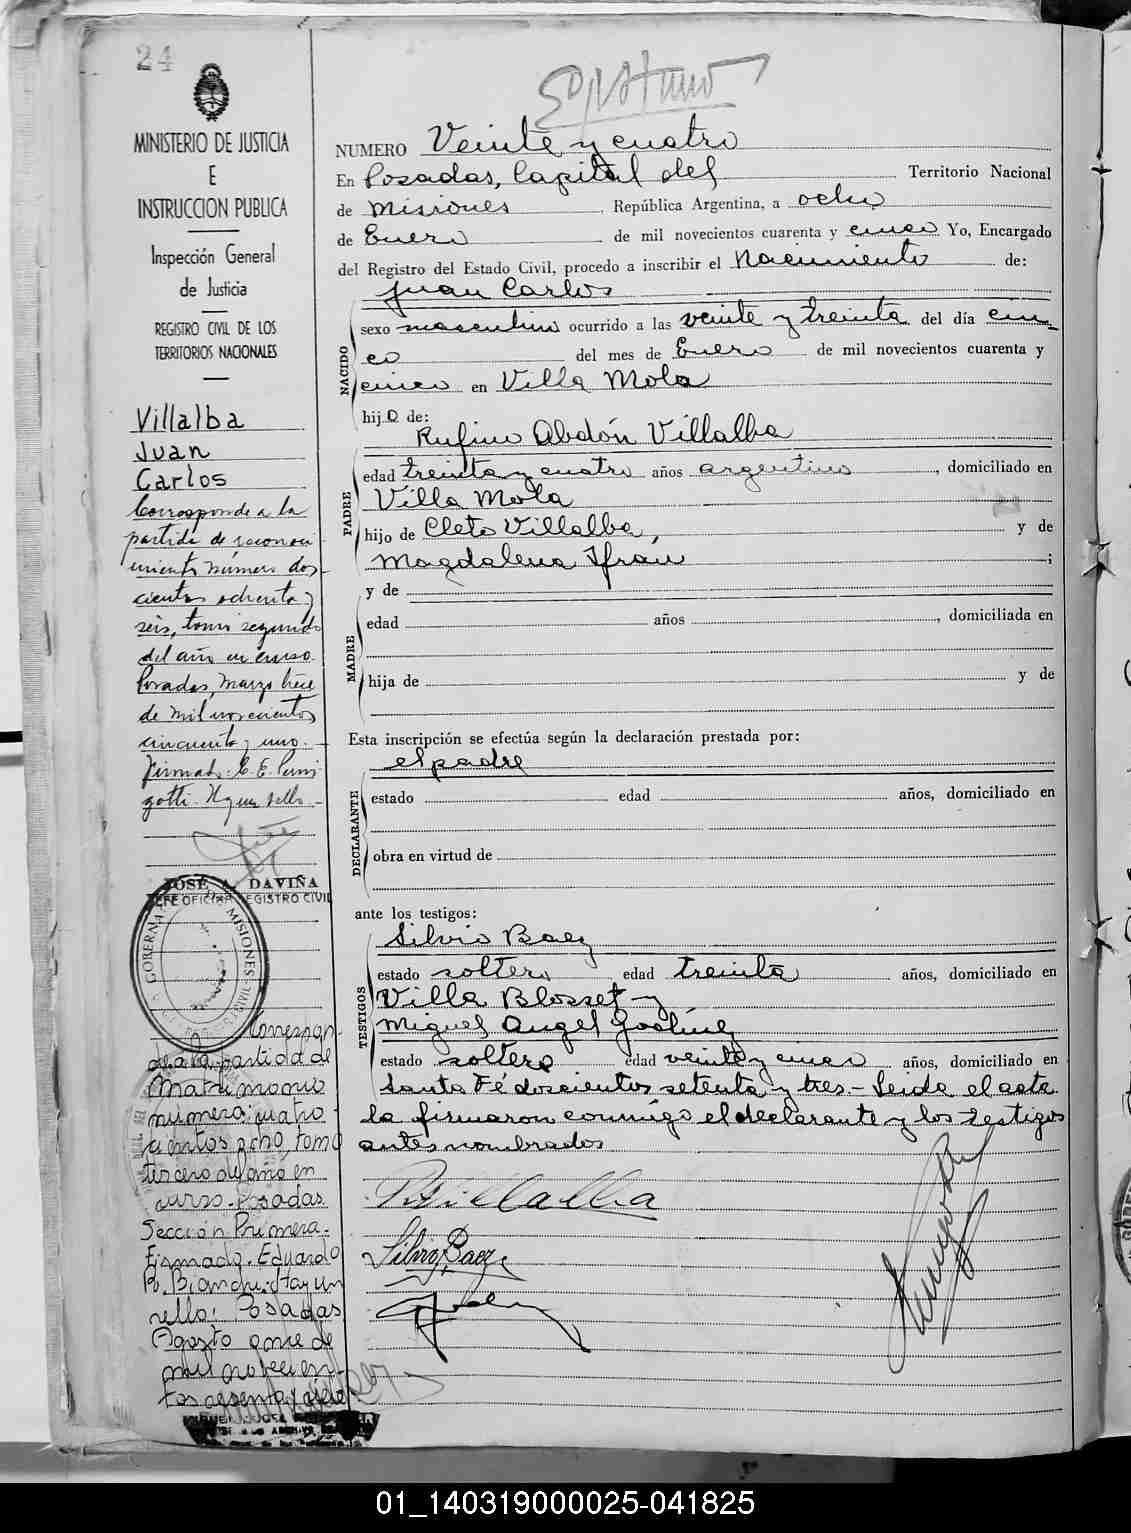 24
MINISTERIO DE JUSTICIA
E
INSTRUCCION PUBLICA
Inspección General
de Justicia
REGISTRO CIVIL DE LOS
TERRITORIOS NACIONALES
Villalba
Juan
Carlos
Corresponde a la
partida de reconoci
miento número dos-
cientos ochenta y
seis, tomo segundo
del año en curso.
Posadas, Marzo trece
de mil novecientos
cincuenta y uno.-
Firmado: E. E.
Hay un sello.-
JOSÉ A. DAVIÑA
JEFE OFICINA REGISTRO CIVIL
GOBERNA
MISIONES
Correspon-
de a la partida de
Matrimonio
número: cuatro-
cientos ocho, tomo
tercero del año en
curso.-Posadas.
Sección Primera.-
Firmado. Eduardo
B. Bianchi. Hay un
sello. Posadas
Agosto once de
mil novecien-
tos sesenta y
NUMERO Veinte y cuatro
En Posadas, Capital del Territorio Nacional
de Misiones, República Argentina, a ocho
de Enero de mil novecientos cuarenta y cinco Yo, Encargado
del Registro del Estado Civil, procedo a inscribir el Nacimiento de:
Juan Carlos
NACIDO
sexo masculino ocurrido a las veinte y treinta del día cin-
co del mes de Enero de mil novecientos cuarenta y
cinco en Villa Mola
hijo de:
Rufino Abdón Villalba
PADRE
edad treinta y cuatro años argentino, domiciliado en
Villa Mola
hijo de Cleto Villalba, y de
Magdalena Ifran ;
y de
MADRE
edad años , domiciliada en
hija de y de
Esta inscripción se efectúa según la declaración prestada por:
el padre
DECLARANTE
estado edad años, domiciliado en
obra en virtud de
ante los testigos:
TESTIGOS
Silvio Baez
estado soltero edad treinta años, domiciliado en
Villa Blosset y
Miguel Angel
estado soltero edad veinte y cinco años, domiciliado en
Santa Fé doscientos setenta y tres.- Leida el acta
la firmaron conmigo el declarante y los testigos
antes nombrados
RVillalba
Silvio Baez
01_140319000025-041825